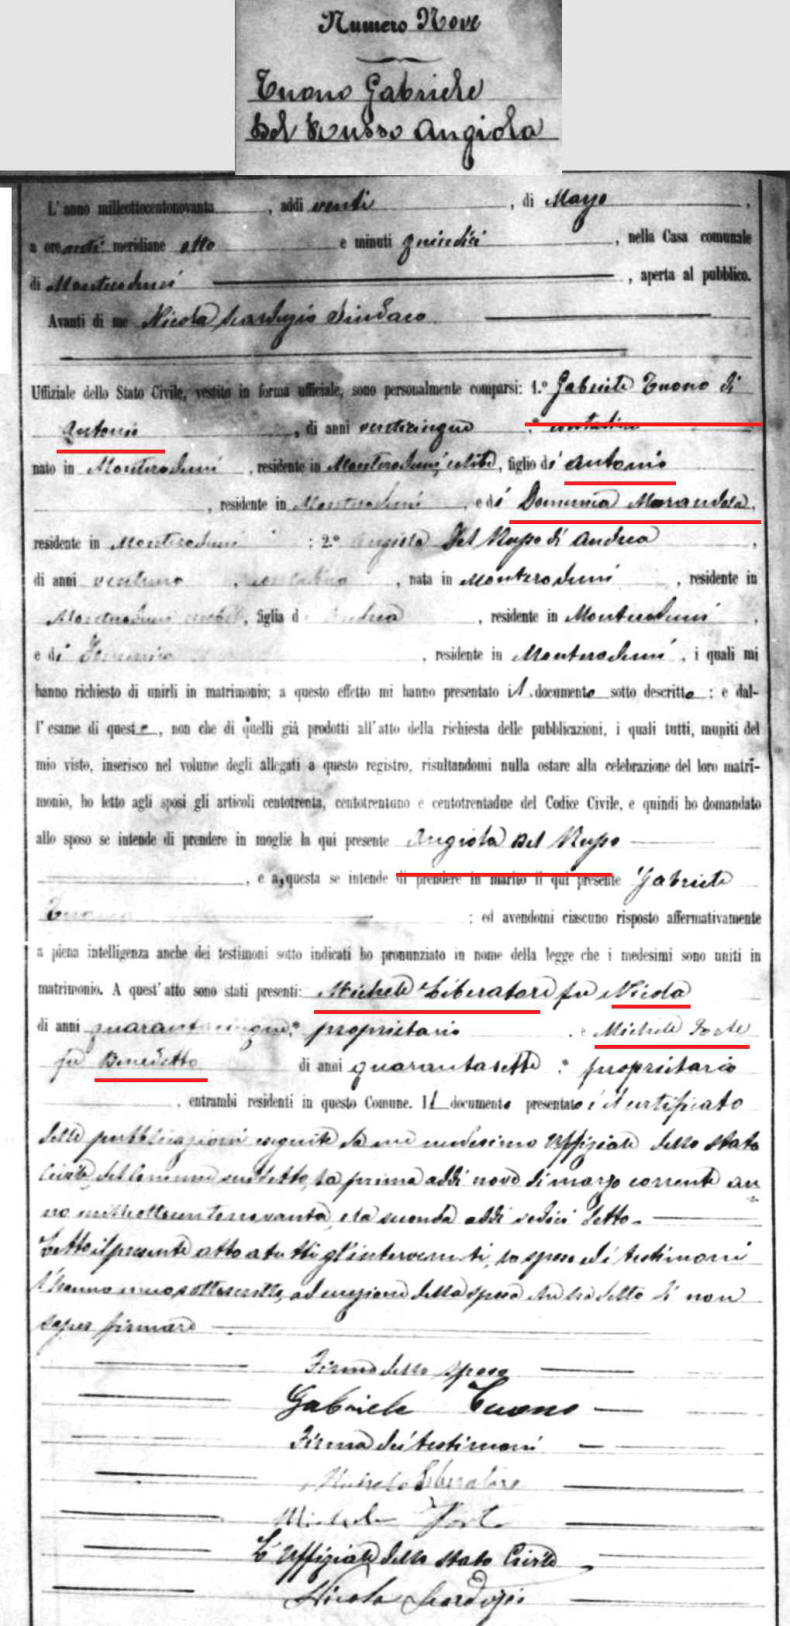 Numero Nove
Tuono Gabriele
Del Russo Angiola
L'anno milleottocentonovanta, addì venti, di Mayo,
a ore anti meridiane otto e minuti quindici, nella Casa comunale
di Monteroduni, aperta al pubblico.
Avanti di me Nicola Scarduzio Sindaco
Uffiziale dello Stato Civile, vestito in forma ufficiale, sono personalmente comparsi: 1.° Gabriele Tuono di
Antonio, di anni venticinque, contadino
nato in Monteroduni, residente in Monteroduni, celibe, figlio di Antonio
, residente in Monteroduni, e di Domenica Marandola,
residente in Monteroduni; 2.° Angiola Del Russo di Andrea,
di anni ventuno, contadina, nata in Monteroduni, residente in
Monteroduni nubile, figlia d Andrea, residente in Monteroduni,
e di, residente in Monteroduni, i quali mi
hanno richiesto di unirli in matrimonio; a questo effetto mi hanno presentato il documento sotto descritto: e dal-
l'esame di questo, non che di quelli già prodotti all'atto della richiesta delle pubblicazioni, i quali tutti, muniti del
mio visto, inserisco nel volume degli allegati a questo registro, risultandomi nulla ostare alla celebrazione del loro matri-
monio, ho letto agli sposi gli articoli centotrenta, centotrentuno e centotrentadue del Codice Civile, e quindi ho domandato
allo sposo se intende di prendere in moglie la qui presente Angiola Del Russo
, e a questa se intende di prendere in marito il qui presente Gabriele
Tuono; ed avendomi ciascuno risposto affermativamente
a piena intelligenza anche dei testimoni sotto indicati ho pronunziato in nome della legge che i medesimi sono uniti in
matrimonio. A quest'atto sono stati presenti: Michele Liberatore fu Nicola
di anni quarantacinque, proprietario, e Michele Forte
fu Benedetto di anni quarantasette, proprietario
, entrambi residenti in questo Comune. Il documento presentato è il certificato
delle pubblicazioni eseguite da me medesimo Uffiziale dello stato
Civile del Comune suddetto, la prima addì nove di marzo corrente an-
no milleottocentonovanta, e la seconda addì sedici detto.
Letto il presente atto a tutti gl'intervenuti, lo sposo ed i testimoni
l'hanno meco sottoscritto, ad eccezione della sposa che ha detto di non
saper firmare
Firma dello sposo
Gabriele Tuono
Firma dei testimoni
Michele Liberatore
Michele Forte
L'Uffiziale dello stato Civile
Nicola Scarduzio